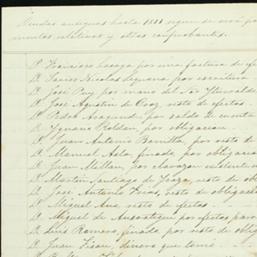 Deudas antiguas hasta 1811 segun
mentos relativos y otros comprobantes.
D. Francisco Lesaga por una factura de
D. Xavier Nicolas Leguana por escritura
D. José Puy por mano del Sor
D. José Agustin de Oraz, resto de efectos.
D. Pedro Aragund por saldo de cuenta
D. Ygnacio Roldan, por obligacion
D. Juan Antonio Bonilla, por resto de
D. Manuel Asla, finado, por obligacion
D. Juan Millan, por
D. Martin Santiago de resto de
D. José Antonio Frias, resto de obligacion
D. Miguel Ana, resto de efectos.
D. Miguel de Ansoategui por efectos para
D. Luis Romero, finado, por resto de
D. Juan Fisau, dinero que tomó